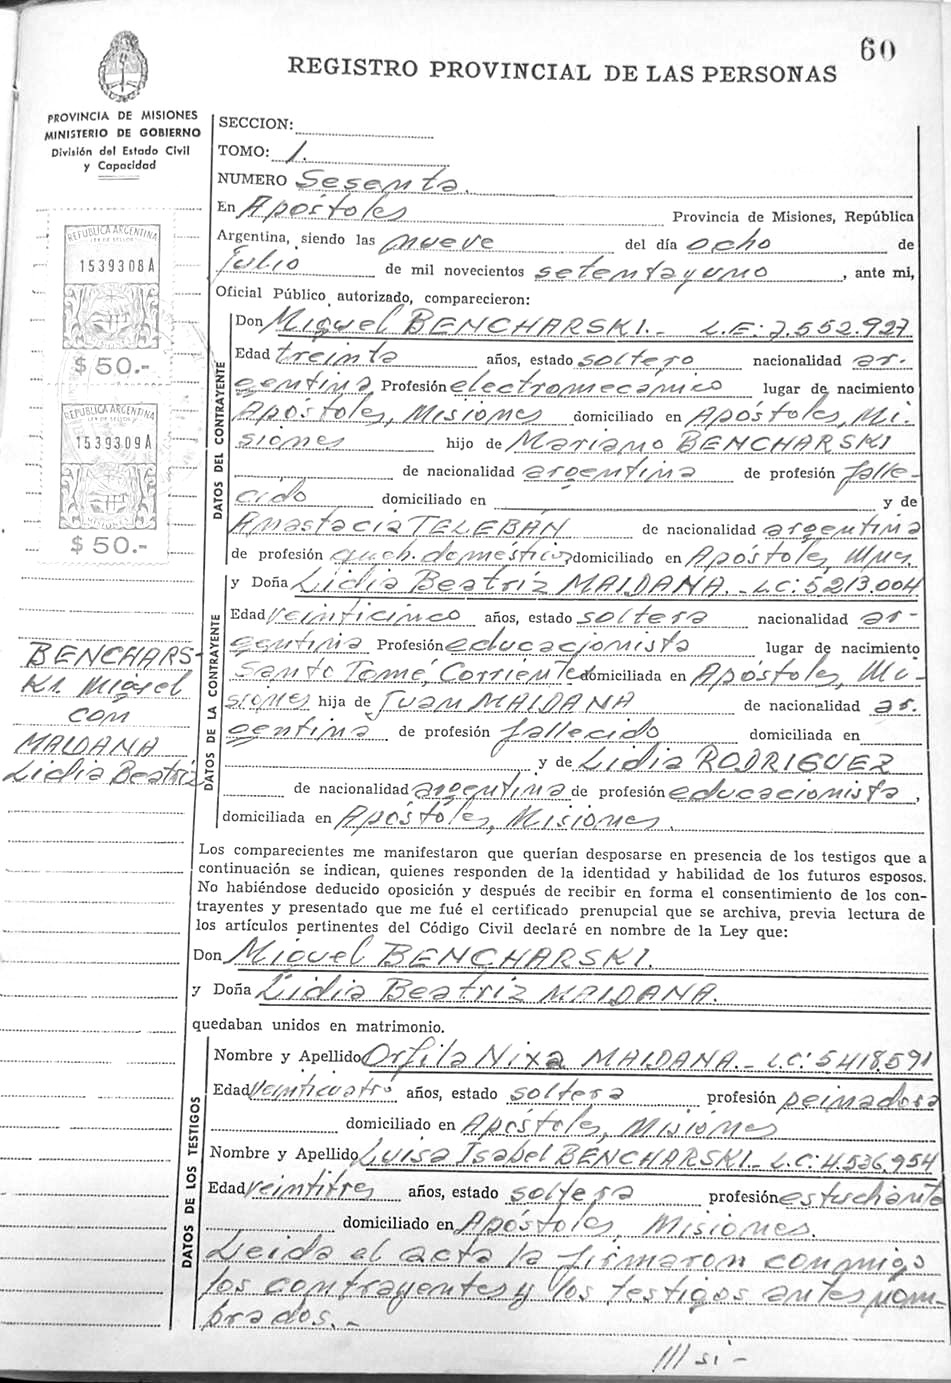 60
REGISTRO PROVINCIAL DE LAS PERSONAS
PROVINCIA DE MISIONES
MINISTERIO DE GOBIERNO
División del Estado Civil
y Capacidad
REPUBLICA ARGENTINA
LEY DE SELLOS
1539308A
$50.-
REPUBLICA ARGENTINA
1539309A
$50.-
BENCHARS-
KI Miguel
con
MALDANA
Lidia Beatriz
SECCION:
TOMO: 1.
NUMERO Sesenta.
En Apóstoles Provincia de Misiones, República
Argentina, siendo las nueve del día ocho de
julio de mil novecientos setentayuno, ante mi,
Oficial Público autorizado, comparecieron:
DATOS DEL CONTRAYENTE
Don Miguel BENCHARSKI.- L.E: 7.552.927
Edad treinta años, estado soltero nacionalidad ar-
gentina Profesión electromecánico lugar de nacimiento
Apóstoles, Misiones domiciliado en Apóstoles, Mi-
siones hijo de Mariano BENCHARSKI
de nacionalidad argentina de profesión falle-
cido domiciliado en y de
Anastacia TELEBAN de nacionalidad argentina
de profesión queh. domésticos domiciliado en Apóstoles, Mnes.
DATOS DE LA CONTRAYENTE
y Doña Lidia Beatriz MALDANA.- L.C: 5.213.004
Edad veinticinco años, estado soltera nacionalidad ar-
gentina Profesión educacionista lugar de nacimiento
Santo Tomé, Corrientes domiciliada en Apóstoles, Mi-
siones hija de Juan MALDANA de nacionalidad ar-
gentina de profesión fallecido domiciliada en
y de Lidia RODRIGUEZ
de nacionalidad argentina de profesión educacionista,
domiciliada en Apóstoles, Misiones.
Los comparecientes me manifestaron que querían desposarse en presencia de los testigos que a
continuación se indican, quienes responden de la identidad y habilidad de los futuros esposos.
No habiéndose deducido oposición y después de recibir en forma el consentimiento de los con-
trayentes y presentado que me fué el certificado prenupcial que se archiva, previa lectura de
los artículos pertinentes del Código Civil declaré en nombre de la Ley que:
Don Miguel BENCHARSKI.
y Doña Lidia Beatriz MALDANA.
quedaban unidos en matrimonio.
DATOS DE LOS TESTIGOS
Nombre y Apellido Orfila Nixa MALDANA.- L.C: 5418.591
Edad veinticuatro años, estado soltera profesión peinadora
domiciliado en Apóstoles, Misiones
Nombre y Apellido Luisa Isabel BENCHARSKI.- L.C: 4.536.954
Edad veintitres años, estado soltera profesión estudiante
domiciliado en Apóstoles, Misiones.
Leida el acta la firmaron conmigo
los contrayentes y los testigos antes nom-
brados.-
///si-